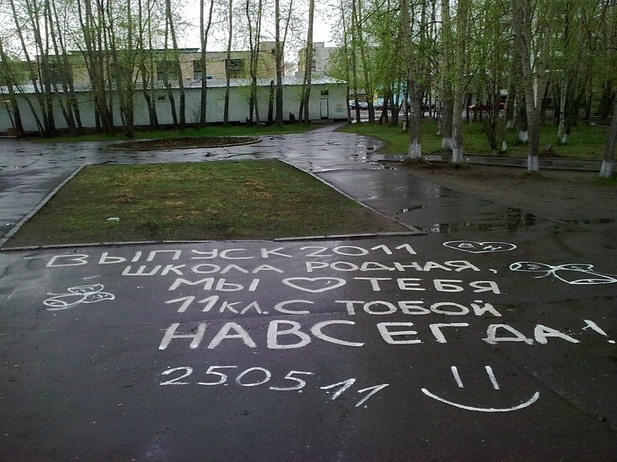 ВЫПУСК 2011
ШКОЛА РОДНАЯ,
МЫ ♡ ТЕБЯ
11 КЛ. С ТОБОЙ
НАВСЕГДА!
25.05.11.